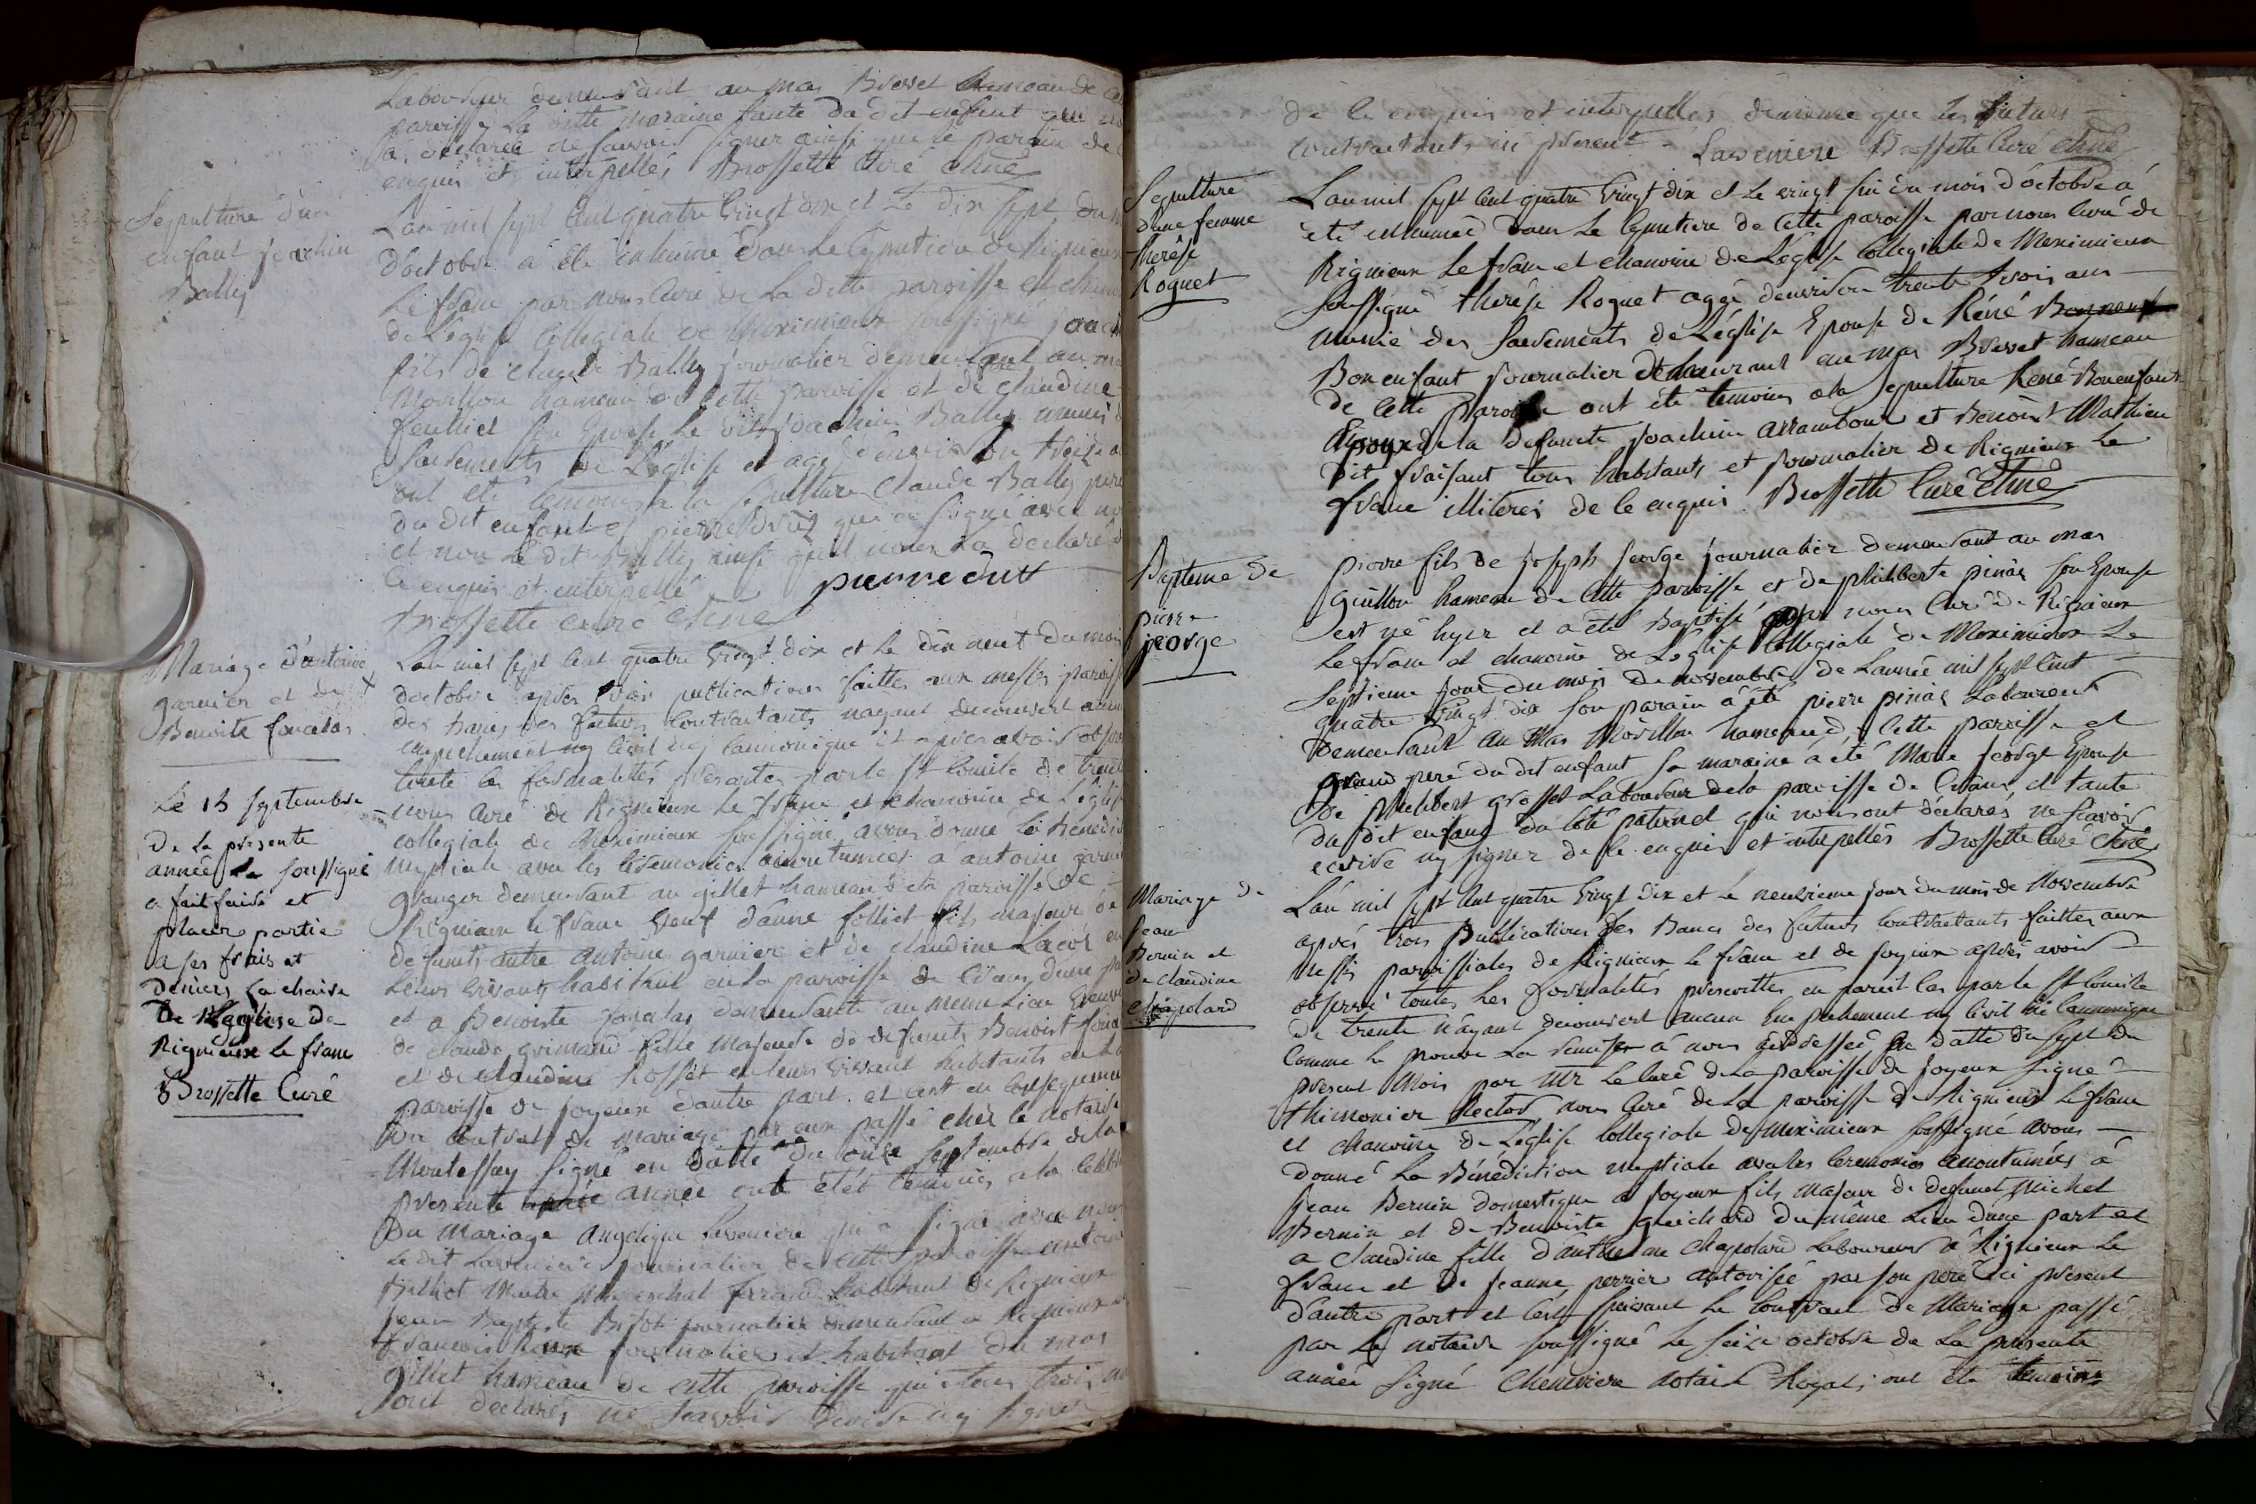 Laboureur demeurant au mas Brevet hameau de
paroisse La ditte maraine tante du dit enfant qui
a déclarée ne scavoir signer ainsi que le parain de
enquis et interpellés Brossette Curé chne
Sepulture d'un
enfant joachim
Bally
L'an mil sept cent quatre vingt dix et Le dix sept du
d'octobre à été inhumé dans Le Cymetiere de Rignieux
Le franc par nous Curé de La ditte paroisse et
de L'église Collegiale de Meximieux soussigné
fils de claude Bally journalier demeurant au
Morillon hameau de cette paroisse et de claudine
feulliet son Epouse Le dit joachim Bally munis
Sacrements de L'église et agé d'environ treize
ont été temoins a la sepulture Claude Bally pere
du dit enfant et pierre drut qui a signé avec
et non Le dit Bally ainsi qu'il nous La déclaré
Ce enquis et interpellé pierre drut
Brossette curé chne
Mariage d'antoine
garnier et de
Benoite fonatas
L'an mil sept cent quatre vingt dix et Le dix neuf du mois
d'octobre après trois publications faittes aux messes
des bancs des futurs Contractants n'ayant decouvert
empechement ny civil ny cannonique et apres avoir
toute les formalités par le st Concile de trente
nous curé de Rignieux Le franc et chanoine de L'église
collegiale de Meximieux soussigné avons donné La
nuptiale avec les Ceremonies accoutumées à antoine
granger demeurant au gillet hameau de la paroisse de
Rignieux le franc veuf d'anne folliet fils majeur de
defunts autre antoine garnier et de claudine Lacor
Leurs vivants habitants en La paroisse de Crans d'une
et a Benoiste fonatas demeurante au meme Lieu veuve
de claude grimaud fille majeure de defunts Benoist
et de claudine Rosset en leurs vivant habitants en La
paroisse de joyeux d'autre part et c'est en Consequence
du Contrat de mariage par eux passé chez le notaire
Montessuy signé en datte du onze septembre de la
presente année ont étét temoins a la
du Mariage angelique Laveniere qui a signé avec nous
Le dit Laveniere journalier de cette paroisse antoine
Maitre Marechal ferrand habitant de Rignieux
jean Baptiste journalier demeurant a Rignieux
francois journalier et habitant du mas
gillet hameau de cette paroisse qui tous trois
ont déclarés ne scavoir Ecrire ny signer
Le 13 septembre
De La présente
année Le soussigné
a fait faire et
placer partie
a ses frais et
deniers La chaire
De L'église de
Rignieux Le franc
Brossette Curé
de Ce enquis et interpellés de meme que les futurs
Contractants ici présent Laveniere Brossette Curé chne
Sepulture
d'une femme
therèse
Roguet
L'an mil sept cent quatre vingt dix et Le vingt six du mois d'octobre à
été inhumée dans Le Cymetiere de cette paroisse par nous Curé de
Rignieux Le franc et chanoine de L'église Collegiale de Meximieux
soussigné therèse Roguet aggé d'environ trente trois ans
munie des Sacrements de L'église Epouse de Réné
Bon enfant journalier demeurant au mas Brevet hameau
de Cette paroisse ont été temoins a la sepulture René Bonenfant
Epoux de la defuncte joachim arrambour et Benoist Mathieu
dit fraisant tous habitants et journalier de Rignieux Le
franc illiterés de Ce enquis Brossette Curé Chne
Bapteme de
pierre
george
Pierre fils de joseph george journalier demeurant au mas
guillon hameau de Cette paroisse et de philiberte pinar son Epouse
est né hyer et a été Baptisé par nous Curé de Rignieux
Le franc et chanoine de L'église Collegiale de Meximieux Le
septieme jour du mois de novembre de L'année mil sept Cent
quatre vingt dix son parain à été pierre pinar Laboureur
demeurant au Mas Morillon hameau de Cette paroisse et
grand pere du dit enfant sa maraine à été Marie george Epouse
de philibert grosset Laboureur de la paroisse de Crans et tante
du dit enfant du coté paternel qui nous ont déclarés ne scavoir
ecrire ny signer de Ce enquis et interpellés Brossette Curé Chne
Mariage de
jean
Bernin et
de claudine
chapolard
L'an mil sept cent quatre vingt dix et Le neuvieme jour du mois de Novembre
après trois publications des Bancs des futurs Contractants faittes aux
Messes paroissiales de Rignieux Le franc et de joyeux après avoir
observé toutes Les formalités prescrittes en pareil Cas par le st Concile
de trente n'ayant decouvert aucun Empechement ny civil ni Cannonique
Comme le prouve La remise à nous addressée de datte du sept du
présent Mois par Mr Le Curé de La paroisse de joyeux signé
thimonier Rector nous Curé de La paroisse de Rignieux Le franc
et chanoine de L'église Collegiale de Meximieux soussigné avons
donné La Bénédiction nuptiale avec les Ceremonies accoutumées à
jean Bernin domestique a joyeux fils majeur de defunct Michel
Bernin et de Benoiste guichard du même Lieu d'une part et
a claudine fille d'anthelme chapolard Laboureur à Rignieux Le
franc et de jeanne perrier autorisée par son pere ici présent
d'autre part et C'est suivant Le Contrat de Mariage passé
par Le notaire soussigné Le seize octobre de La présente
année signé Cheneviere notaire Royal; ont été temoins